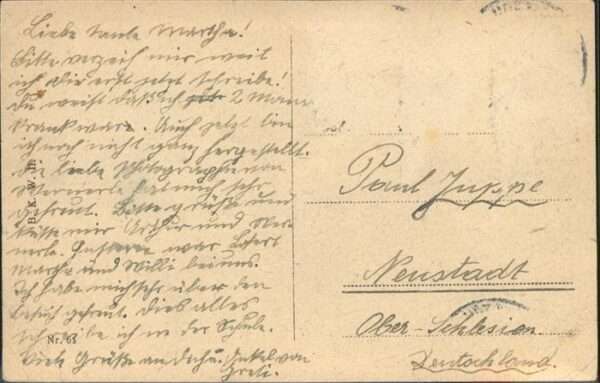 Liebe tante Martha!
Bitte verzeih mir weil
ich dir erst jetzt schreibe!
Du weißt daß ich 2 Mon
krank ware. Auch jetzt bin
ich noch nicht ganz hergestellt.
Die liebe Photographie von
hat mich sehr
gefreut. Bitte grüße und
küße mir Arthur und
war
Martha und Willi bei uns.
Ich habe mich sehr über den
Besuch gefreut. Dies alles
schreibe ich in der Schule.
Viele Grüße an Onkel von
Greti.
B.K.W.I.
Nr. 63
Paul Juppe
Neustadt
Ober-Schlesien
Deutschland.